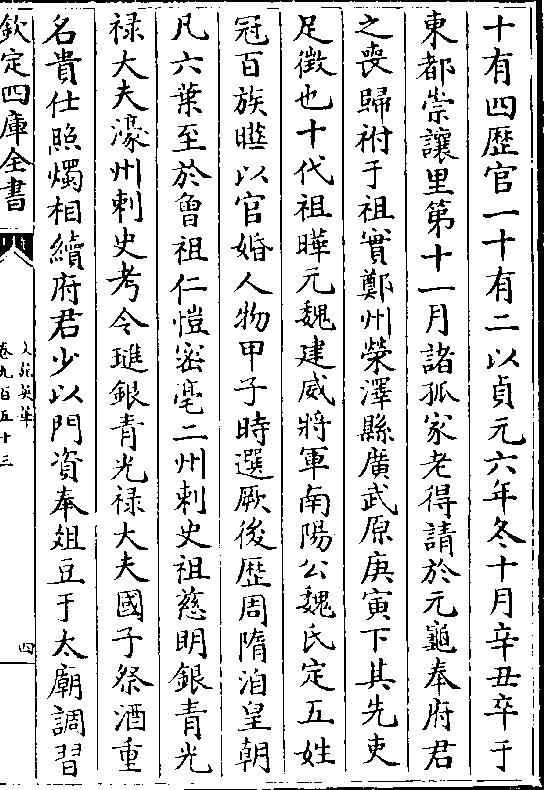 十有四歴官一十有二以貞元六年冬十月辛丑卒于
東都崇讓里第十一月諸孤家老得請於元龜奉府君
之喪歸祔于祖實鄭州滎澤縣廣武原庚寅下其先吏
足徴也十代祖曄元魏建威將軍南陽公魏氏定五姓
冠百族㬜以官婚人物甲子時選厥後歴周隋洎皇朝
凡六葉至於曾祖仁愷密亳二州刺史祖慈明銀青光
禄大夫濠州刺史考令璡銀青光禄大夫國子祭酒重
名貴仕照燭相續府君少以門資奉俎豆于太廟調習
欽定四庫全書
文苑英華
卷九百五十三
四